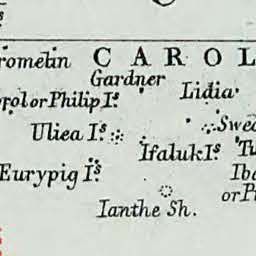 romelin CAROL
Gardner
rol or Philip Is.
Lidia
Swed
Uliea Is.
Ifaluk Is.
Tu
Eurypig Is.
Ibe
or Pi
Ianthe Sh.